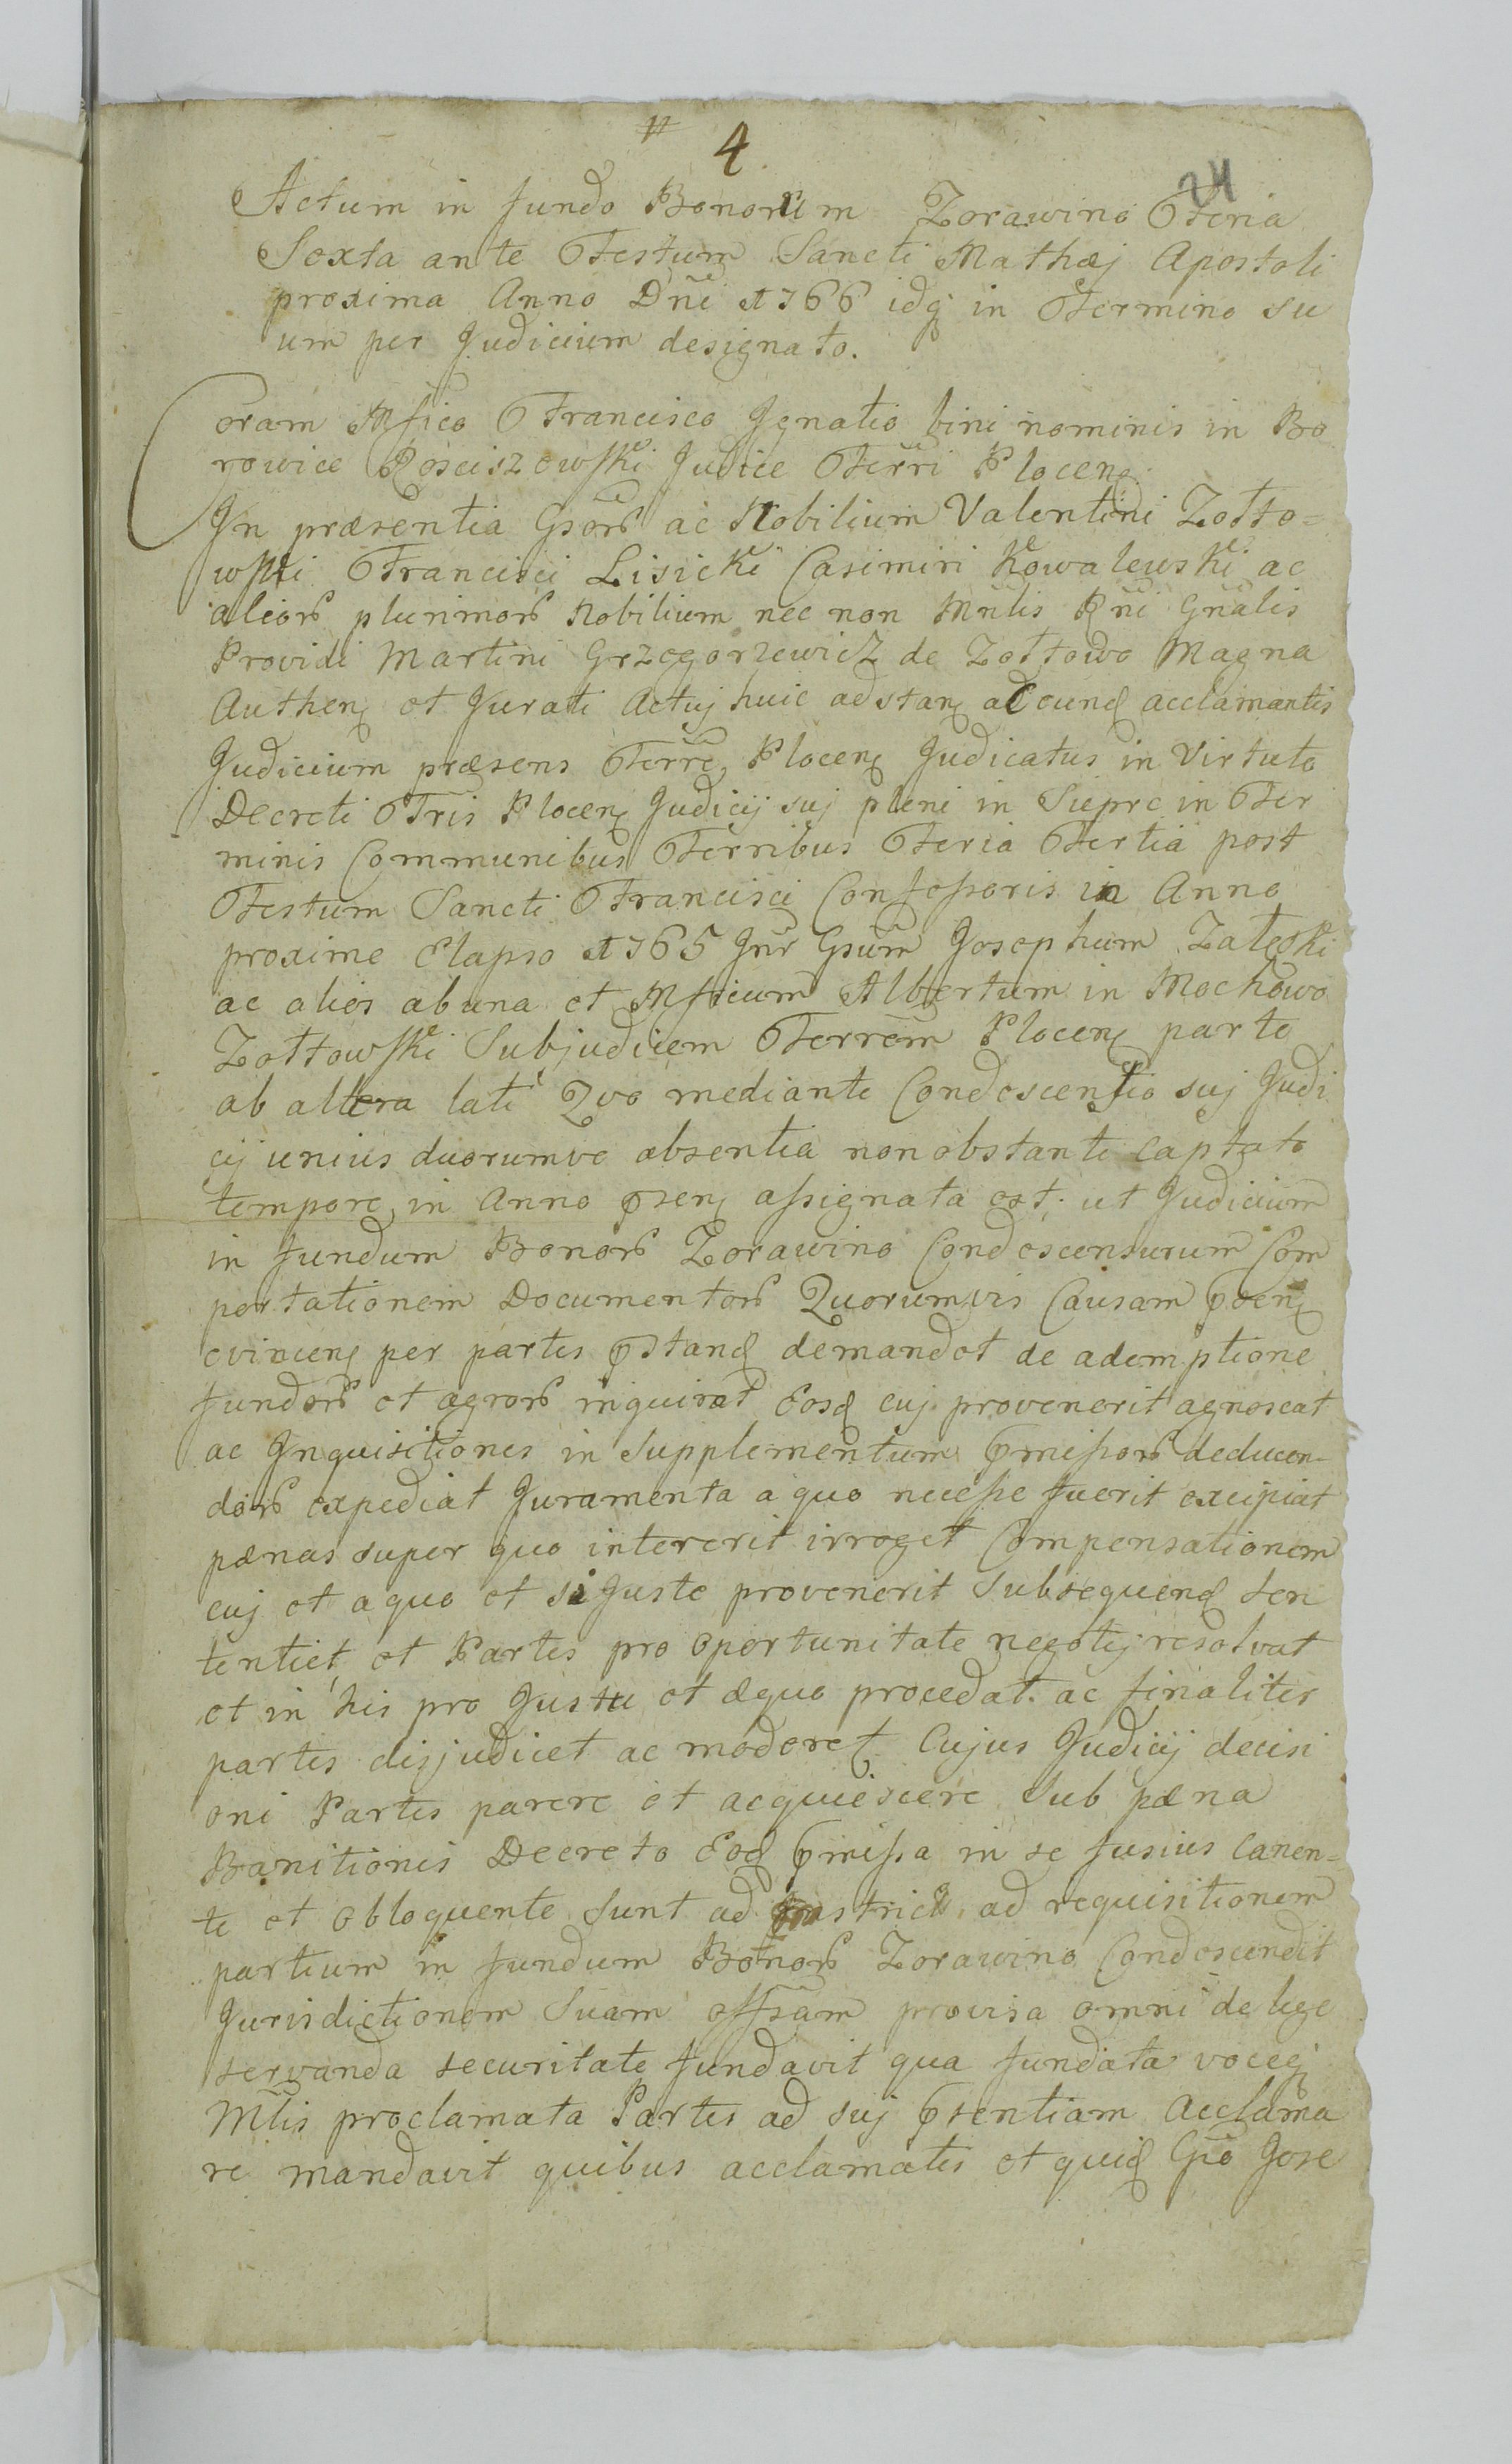 4
24
Actum in fundo Bonorum Zorawino Feria
Sexta ante Festum Sancti Mathæj Apostoli
proxima Anno Dñi 1766 idq in Termino su
um per Judicium designato.
Coram Mfico Francisco Jgnatio bini nominis in Bo
rowice Rosciszewski Judice Terri Plocen
Jn præsentia Gsorũ ac Nobilium Valentini Zołto=
wski Francisci Lisicki Casimiri Kowalewski ac
aliorũ plurimorũ Nobilium nec non Mnlis Rñi Gñalis
Providi Martini Grzegorzewicz de Zołtowo Magna
Authen et Jurati Actuj huic adstan ad eund acclamantis
Judicium præsens Terre Plocen Judicatus in Virtute
Decreti Tris Plocen Judicij suj pleni in Sieprc in Ter
minis Communibus Terribus Feria Tertia post
Festum Sancti Francisci Confessoris in Anno
proxime Elapso 1765 Jnr Gsum Josephum Zaleski
ac alios ab una et Mficum Albertum in Mochowo
Zołtowski Subjudicem Terrem Plocen parte
ab altera lati Quo mediante Condescensio suj Judi
cij unius duorumve absentia non obstante captato
tempore in Anno psen assignata est. ut Judicium
in fundum Bonorũ Zorawino Condescensurum Com
portationem Documentorũ Quorumvis Causam psen
evincen per partes pstand demandet de ademptione
fundorũ et agrorũ inquirat Eosd cuj provenerit agnoscat
ac Jnquisitiones in Supplementum pmissorũ deducen-
dorũ expediat Juramenta a quo necesse fuerit excipiat
pænas super quo intererit irroget Compensationem
cuj et a quo et si Juste provenerit Subsequend sen
tentiet et Partes pro oportunitate negotij resolvat
et in his pro Justu et æquo procedat. ac finaliter
partes disjudicet ac moderet Cujus Judicij decisi
oni Partes parere et acquiescere Sub pæna
Banitionis Decreto Eod pmissa in se fusius Canen=
te et obloquente Sunt ad strict. ad requisitionem
partium in fundum Bonorũ Zorawino Condescendit
Jurisdictionem Suam offsam provisa omni de lege
servanda securitate fundavit qua fundata voceq
Mlis proclamata Partes ad suj psentiam Acclama
re mandavit quibus acclamatis et quid Gso Jose